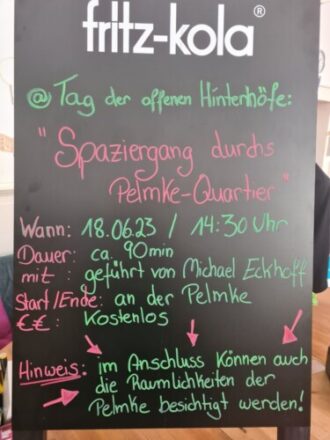 fritz-kola®
@ Tag der offenen Hinterhöfe:
"Spaziergang durchs
Pelmke-Quartier"
Wann: 18.06.23 / 14:30 Uhr
Dauer: ca. 90min
mit: geführt von Michael Eckhoff
Start/Ende: an der Pelmke
€€: Kostenlos
Hinweis: im Anschluss können auch
die Räumlichkeiten der
Pelmke besichtigt werden!